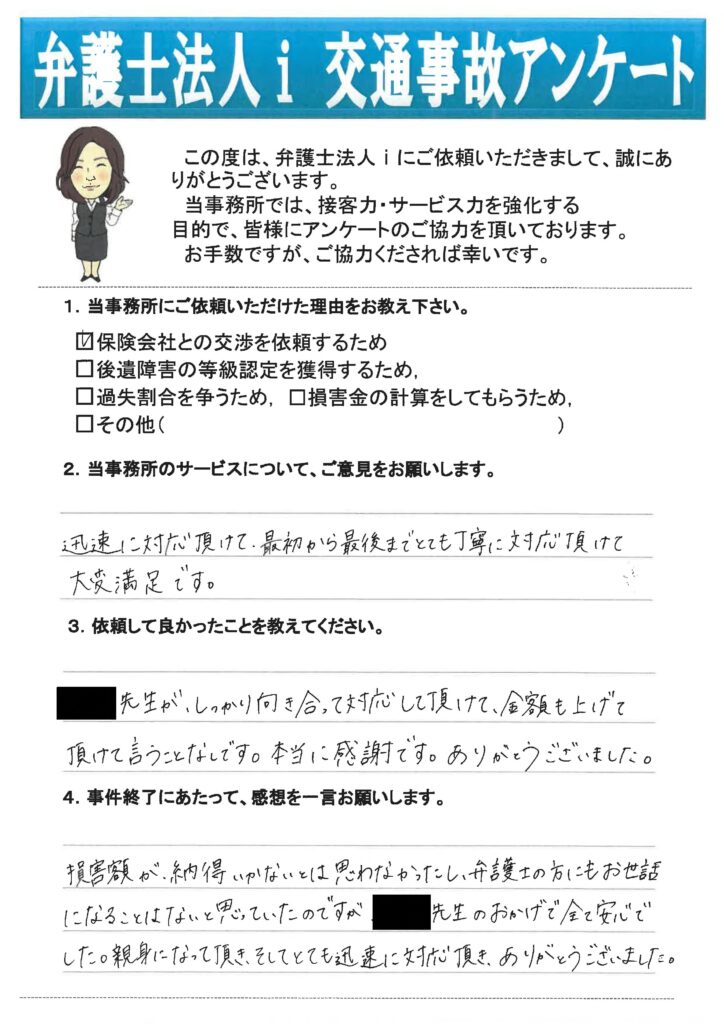 弁護士法人ｉ 交通事故アンケート
この度は、弁護士法人ｉにご依頼いただきまして、誠にあ
りがとうございます。
当事務所では、接客力・サービス力を強化する
目的で、皆様にアンケートのご協力を頂いております。
お手数ですが、ご協力くだされば幸いです。
１．当事務所にご依頼いただけた理由をお教え下さい。
☑保険会社との交渉を依頼するため
□後遺障害の等級認定を獲得するため，
□過失割合を争うため，□損害金の計算をしてもらうため，
□その他（　　　）
２．当事務所のサービスについて、ご意見をお願いします。
迅速に対応頂けて、最初から最後までとても丁寧に対応頂けて
大変満足です。
３．依頼して良かったことを教えてください。
先生が、しっかり向き合って対応して頂けて、金額も上げて
頂けて言うことなしです。本当に感謝です。ありがとうございました。
４．事件終了にあたって、感想を一言お願いします。
損害額が、納得いかないとは思わなかったし、弁護士の方にもお世話
になることはないと思っていたのですが、先生のおかげで全て安心で
した。親身になって頂き、そしてとても迅速に対応頂き、ありがとうございました。